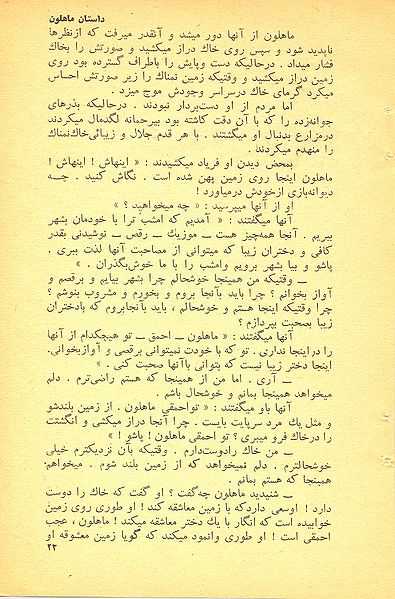 داستان ماهلون
ماهلون از آنها دور میشد و آنقدر میرفت که ازنظرها
ناپدید شود و سپس روی خاك دراز میکشید و صورتش را بخاك
فشار میداد . درحالیکه دست وپایش را باطراف گسترده بود روی
زمین دراز میکشید و وقتیکه زمین نمناك را زیر صورتش احساس
میکرد گرمای خاك درسراسر وجودش موج میزد .
اما مردم از او دست‌بردار نبودند . درحالیکه بذرهای
جوانه‌زده را که با آن دقت کاشته بود بیرحمانه لگدمال میکردند
درمزارع بدنبال او میگشتند . با هر قدم جلال و زیبائی‌خاك‌نمناك
را منهدم میکردند .
بمحض دیدن او فریاد میکشیدند : « اینهاش ! اینهاش !
ماهلون اینجا روی زمین پهن شده است . نگاش کنید . چــه
دیوانه‌بازی ازخودش درمیاورد !
او از آنها میپرسید : « چه میخواهید ؟ »
آنها میگفتند : « آمدیم که امشب ترا با خودمان بشهر
ببریم . آنجا همه‌چیز هست ــ موزیك ــ رقص ــ نوشیدنی بقدر
کافی و دختران زیبا که میتوانی از مصاحبت آنها لذت ببری .
پاشو و بیا بشهر برویم وامشب را با ما خوش‌بگذران . »
ــ وقتیکه من همینجا خوشحالم چرا بشهر بیایم و برقصم و
آواز بخوانم ؟ چرا باید بآنجا بروم و بخورم و مشروب بنوشم ؟
چرا وقتیکه اینجا هستم و خوشحالم ، باید بآنجابروم که بادختران
زیبا بصحبت بپردازم ؟
آنها میگفتند : « ماهلون ــ احمق ــ تو هیچکدام از آنها
را دراینجا نداری . تو که با خودت نمیتوانی برقصی و آوازبخوانی.
اینجا دختر زیبا نیست که بتوانی باآنها صحبت کنی . »
ــ آری . اما من از همینجا که هستم راضی‌ترم . دلم
میخواهد همینجا بمانم و خوشحال باشم .
آنها باو میگفتند : « تواحمقی ماهلون . از زمین بلندشو
و مثل یك مرد سرپایت بایست . چرا آنجا دراز میکشی و انگشتت
را درخاك فرو میبری ؟ تو احمقی ماهلون ! پاشو ! »
ــ من خاك رادوست‌دارم . وقتیکه بآن نزدیکترم خیلی
خوشحالترم . دلم نمیخواهد که از زمین بلند شوم . میخواهم
همینجا که هستم بمانم .
ــ شنیدید ماهلون چه‌گفت ؟ او گفت که خاك را دوست
دارد ! اوسعی داردکه با زمین معاشقه کند ! او طوری روی زمین
خوابیده است که انگار با یك دختر معاشقه میکند ! ماهلون ، عجب
احمقی است ! او طوری وانمود میکند که گویا زمین معشوقه او
۲۳